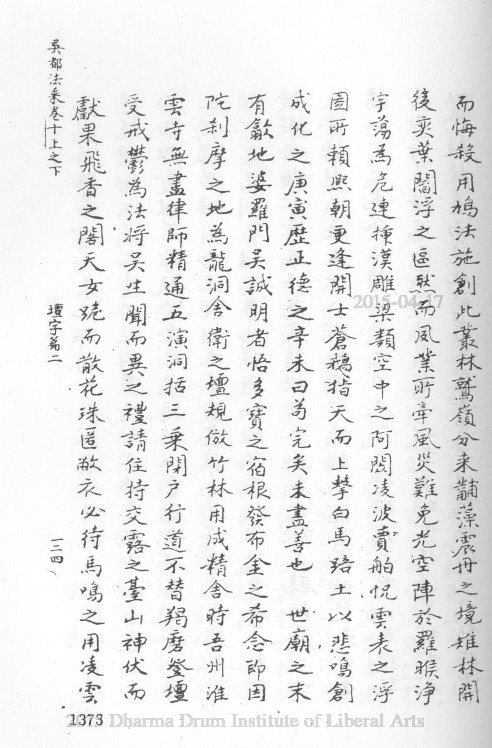 而悔殺用鳩法施創此叢林鷲嶺分來黼藻震丹之境雉林開
後奕葉閻浮之區然而風業所牽風災難免光空陣於羅睺浄
宇蕩為危連揷漢雕梁類空中之阿閦凌波賈舶怳雲表之浮
圖所頼熙朝更逢開士蒼鵝指天而上擊白馬踣土以悲鳴創
成化之庚寅歷正德之辛未曰茍完矣未盡善也 世廟之末
有歙地婆羅門吳誠明者恪多寶之宿根發布金之希念即因
陀刹摩之地為龍洞舍衛之壇規倣竹林用成精舍時吾州淮
雲寺無盡律師精通五演洞括三乗閑户行道不替羯磨登壇
受戒欝為法將吳生聞而異之禮請住持交露之臺山神伏而
獻果飛香之閣天女跪而散花珠匿敝衣必待馬鳴之用凌雲
吳都法乘卷十上之下
壇宇第二
一三四
2015-04-17
1373
Dharma Drum Institute of Liberal Arts